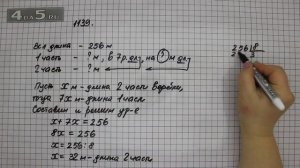 4АРОК5.RU
1139.
Вся длина - 256 м
1 часть - ? м, в 7 р. дл., на ? м дл
2 часть - ? м
Пусть x м - длина 2 части верёвки,
тогда 7x м - длина 1 части.
Составим и решим ур-е
x + 7x = 256
8x = 256
x = 256 : 8
x = 32 м - длина 2 части
256 8